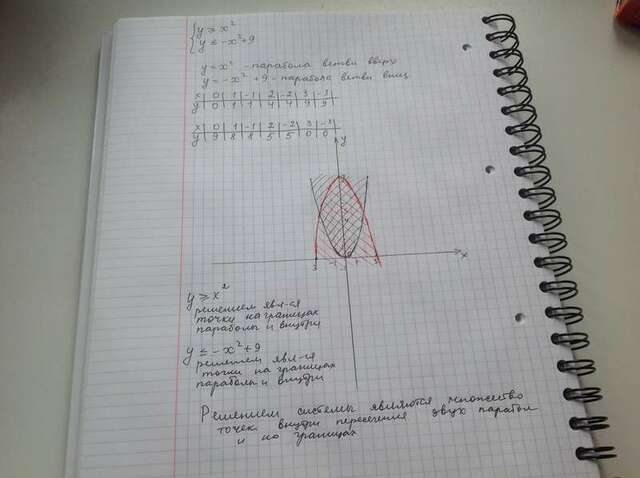 {y ≥ x²
y ≤ -x²+9
y = x² - парабола ветви вверх
y = -x² + 9 - парабола ветви вниз
x | 0 | 1 | -1 | 2 | -2 | 3 | -3
y | 0 | 1 | 1 | 4 | 4 | 9 | 9
x | 0 | 1 | -1 | 2 | -2 | 3 | -3
y | 9 | 8 | 8 | 5 | 5 | 0 | 0
y
x
y ≥ x²
решением явл-ся
точки на границах
параболы и внутри
y ≤ -x²+9
решением явл-ся
точки на границах
параболы и внутри
Решением системы являются множество
точек внутри пересечения двух парабол
и на границах